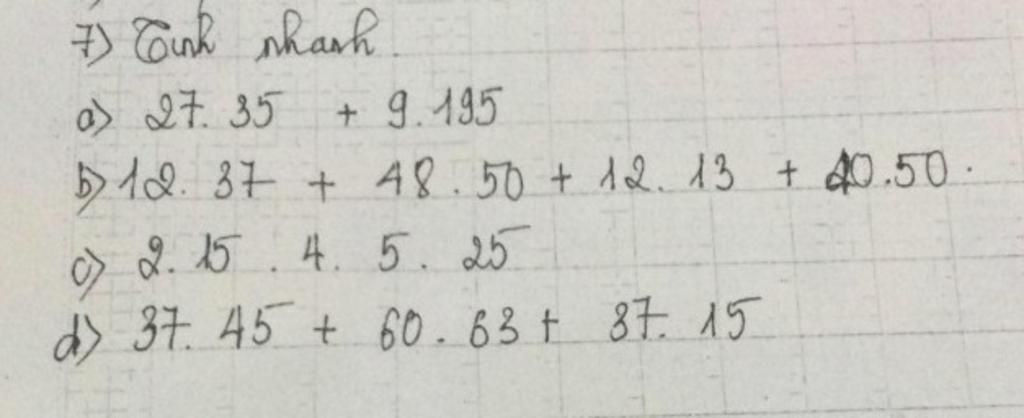 7) Tính nhanh.
a) 27. 35 + 9. 195
b) 12. 37 + 48. 50 + 12. 13 + 40.50.
c) 2. 15. 4. 5. 25
d) 37. 45 + 60. 63 + 37. 15